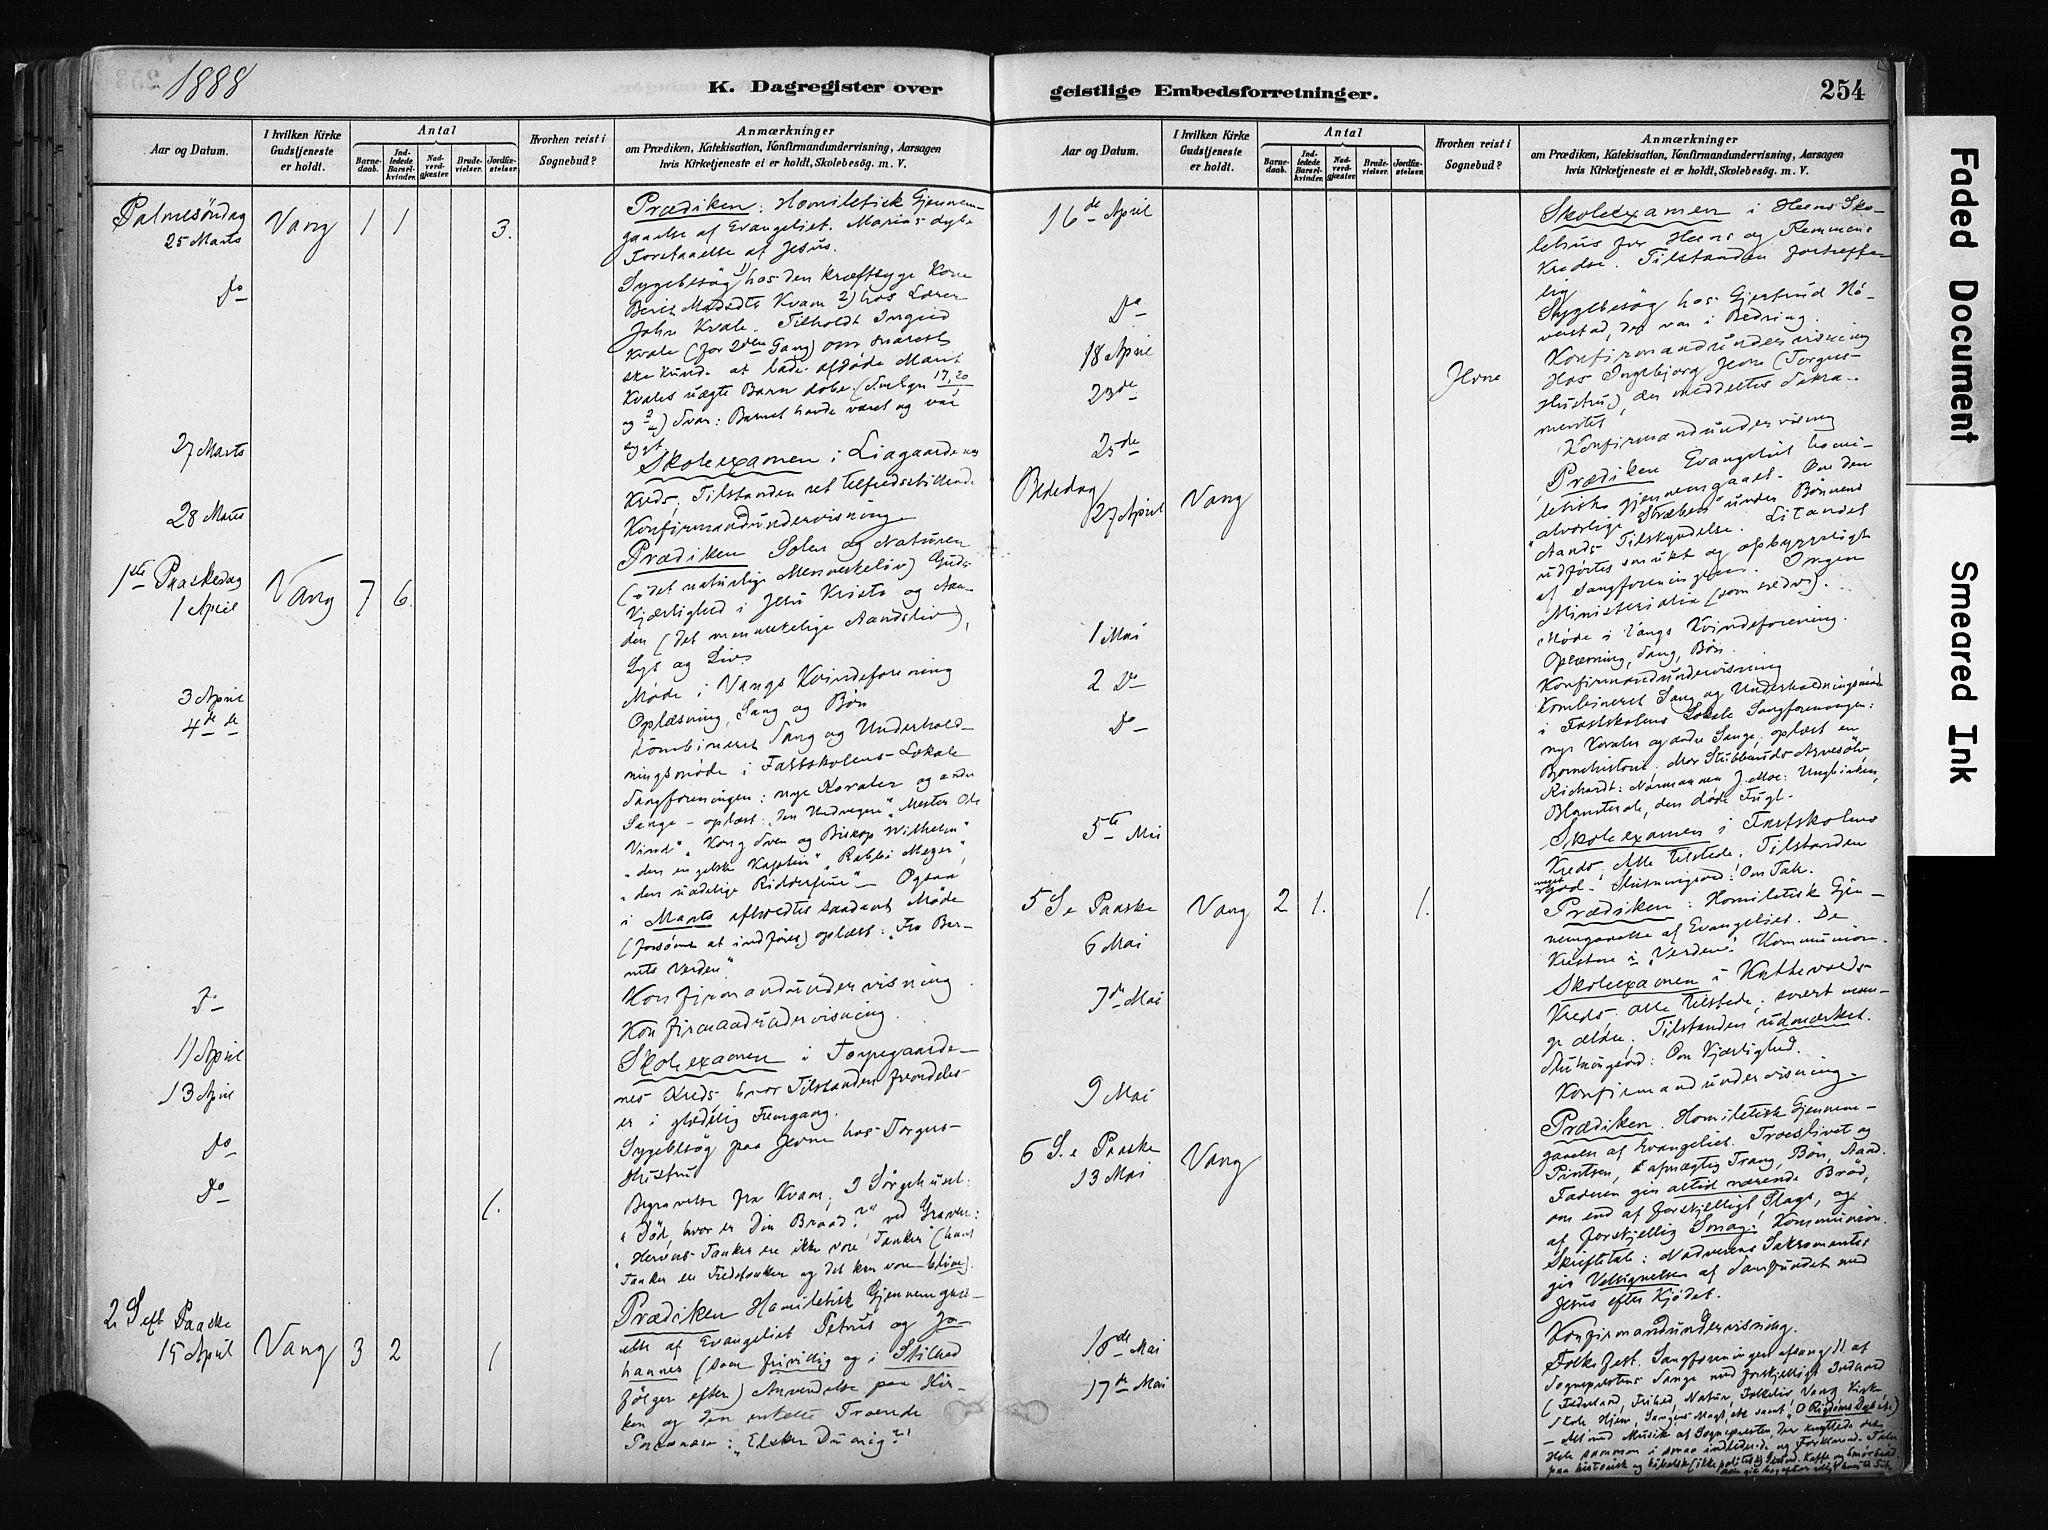 1888
K. Dagregister over
geistlige Embedsforretninger.
254
Aar og Datum.
I hvilken Kirke Gudstjeneste er holdt.
Antal
Barnedaab.
Indledede Barselkvinder.
Nadverdgjæster.
Brudevielser.
Jordfæstelser.
Hvorhen reist i Sognebud?
Anmærkninger
om Prædiken, Katekisation, Konfirmandundervisning, Aarsagen
hvis Kirketjeneste ei er holdt, Skolebesög. m. V.
Palmesöndag
25 Marts Vang 1 1 3.
Prædiken: Homiletisk Gjennem-
gaaelse af Evangeliet. Marias dybe
Forstaaelse af Jesus.
Do
Sygebesög 1) hos den kræftsyge Kone
Berit Kvam 2) hos Lærer
John Kvale. Tilholdt Ingrid
Kvale (for 2den Gang) om snarest
ske kunde at lade afdøde Marit
Kvales uægte Barn döbe
Svar: Barnet havde været og var
sygt.
27 Marts
Skoleexamen i Liagaardenes
Kreds, Tilstanden ret tilfredsstillende
28 Marts
Konfirmandundervisning
1ste Paaskedag
1 April Vang 7 6.
Prædiken Solen og Naturen
(det naturlige Menneskeliv) Guds
Kjærlighed i Jesu Kristo og Aan-
den (det menneskelige Aandsliv),
Lys og Liv.
3 April
Møde i Vangs Kvindeforening
Oplæsning, Sang og Bön
4de de
Kombineret Sang og Underhold-
ningsmøde i Fastskolens Lokale
Sangforeningen: nye Koraler og andre
Sange - oplæst: Mester Ole
Vind" "Kong Sven og Biskop Wilhelm"
"den engelske Kaptein"
"den uadelige" - Ogsaa
i Marts afholdtes saadant Møde
(forsömt at indføres) oplæst: "Fra Bar-
nets Verden".
Do
Konfirmandundervisning.
11 April
Konfirmandundervisning.
13 April
Skoleexamen i Torpegaarde-
nes Kreds, hvor Tilstanden fremdeles
er i glædelig Fremgang.
Do
Sygebesög paa Jevne hos Torgus-
Hustru
Do 1.
Begravelse fra Kvam; I Sörgehuset:
"Död, hvor er Din Braad?" ved Graven:
"Herrens Tanker ere ikke vore Tanker" (hans
Tanker er Fredstanker og det kan vore blive).
2 S eft Paaske
15 April Vang 3 2 1
Prædiken Homiletisk Gjennemgaa-
else af Evangeliet Petrus og Jo-
hannes (som frivillig og i Stilhed
følger efter) Anvendelse paa Kir-
ken og den enkelte Troende
"Elsker Du mig?"
Aar og Datum.
I hvilken Kirke Gudstjeneste er holdt.
Antal
Barnedaab.
Indledede Barselkvinder.
Nadverdgjæster.
Brudevielser.
Jordfæstelser.
Hvorhen reist i Sognebud?
Anmærkninger
om Prædiken, Katekisation, Konfirmandundervisning, Aarsagen
hvis Kirketjeneste ei er holdt, Skolebesög. m. V.
16de April
Skoleexamen i Heens Sko-
lehus for Heens og Remmens
Kredse. Tilstanden fortreffe-
lig
Do
Sygebesög hos Gjertrud Nö-
verstad, der var i Bedring.
18 April
Konfirmandundervisning
23de Jevne
Hos Ingebjorg Jevne (Torgus-
Hustru), der meddeltes Sakra-
mentet
25de
Konfirmandundervisning
Bededag
27 April Vang
Prædiken Evangeliet homi-
letisk gjennemgaaet. Om den
alvorlige Stræben under Bönnens
Aands Tilskyndelse. Litaniet
udførtes smukt og opbyggeligt
af Sangforeningen. Ingen
Ministerialia
1 Mai
Møde i Vangs Kvindeforening.
Oplæsning, Sang, Bön.
2 Do
Konfirmandundervisning
Do
Kombineret Sang og Underholdningsmøde
i Fastskolens Lokale Sangforeningen:
nye Koraler og andre Sange, oplæst en
Bjørnehistorie. Mor Stubbenuds Arvesölv
Richardt: J. Moe: Ungbirken,
Blomsterale, den døde Fugl.
5te Mai
Skoleexamen i Fastskolens
Kreds. Alle tilstede, Tilstanden
meget god. Slutningsord: Om Tak.
5 S e Paaske Vang 2 1. 1.
6 Mai
Prædiken: Homiletisk Gjen-
nemgaaelse af Evangeliet. De
Kristne i "Verden". Kommunion.
7de Mai
Skoleexamen i Kattevolds-
Kreds alle tilstede; svært man-
ge ældre. Tilstanden udmærket.
Slutningsord: Om Kjærlighed.
9 Mai
Konfirmandundervisning.
6 S. e Paaske
13 Mai Vang
Prædiken. Homiletisk Gjennem-
gaaelse af Evangeliet. Troeslivet og
Pintsen, Trang, Bön, Aand.
Faderen giv altid nærende Bröd,
om end af forskjelligt Slags, og
af forskjellig Smag. Kommunion.
Skriftetale: Nadverens Sakramente
giv Velsignelsen af Samfundet med
Jesus efter Kjødet.
16de Mai
Konfirmandundervisning.
17de Mai
Folkefest. Sangforeningen afsang 11 af
Sognepræstens Sange med forskjelligt Indhold
(Fædreland, Frihed, Natur, Folkeliv Vang Kirke
Skole Hjem, Sangens Magt, etc samt
- Alt med Musik af Sognepræsten, der knyttede det
Hele sammen i smaa indledende og Forklarende Taler
paa historisk og bibelsk (ikke politisk)
Faded Document
Smeared Ink